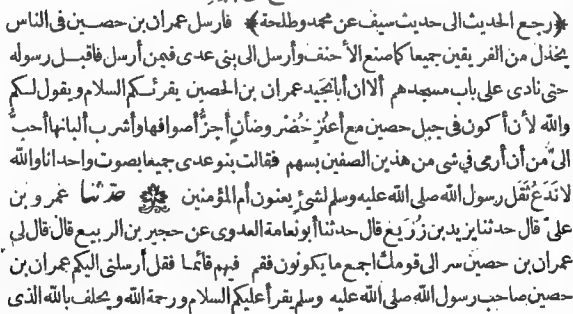 ﴿رجع الحديث الى حديث سيف عن محمد وطلحة﴾ فارسل عمران بن حصين فى الناس
يخذل من الفريقين جميعا كما صنع الأحنف وأرسل الى بنى عدى فيمن أرسل فاقبل رسوله
حتى نادى على باب مسجدهم ألا ان أبا نُجَيد عمران بن الحصين يقرئكم السلام ويقول لكم
والله لأن أكون فى جبل حصين مع أعنُز خُضْر وضأن أجزُّ أصوافها وأشرب ألبانها أحبُّ
الىَّ من أن أرمى فى شئ من هذين الصفين بسهم فقالت بنو عدى جميعا بصوت واحد انا والله
لا ندَعُ ثَقَل رسول الله صلى الله عليه وسلم لشئ يعنون أم المؤمنين حدثنا عمرو بن
علىّ قال حدثنا يزيد بن زُرَيع قال حدثنا أبو نعامة العدوى عن حجير بن الربيع قال قال لى
عمران بن حصين سر الى قومك اجمع ما يكونون فقم فيهم قائما فقل أرسلنى اليكم عمران بن
حصين صاحب رسول الله صلى الله عليه وسلم يقرأ عليكم السلام ورحمة الله ويحلف بالله الذى